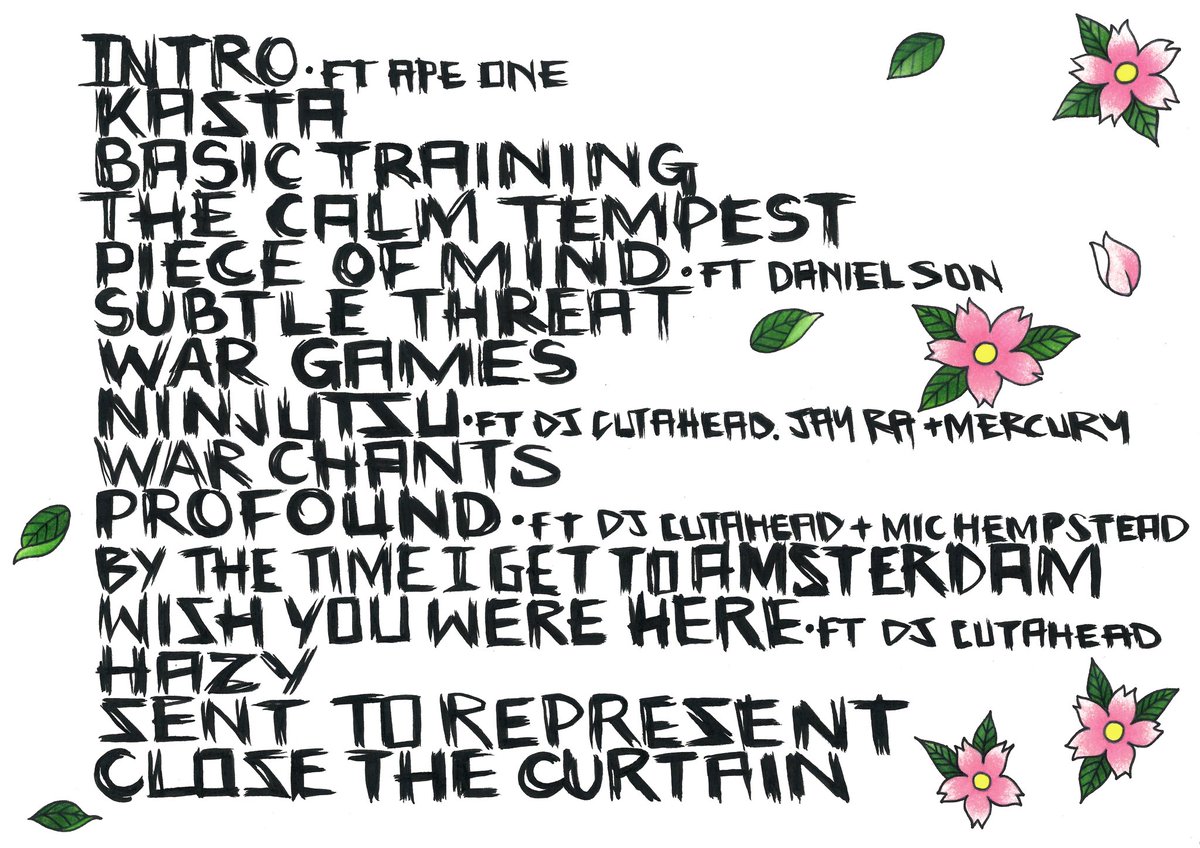 INTRO · FT APE ONE
KASTA
BASIC TRAINING
THE CALM TEMPEST
PIECE OF MIND · FT DANIEL SON
SUBTLE THREAT
WAR GAMES
NINJUTSU · FT DJ CUTAHEAD. JAY RA + MERCURY
WAR CHANTS
PROFOUND · FT DJ CUTAHEAD + MIC HEMPSTEAD
BY THE TIME I GET TO AMSTERDAM
WISH YOU WERE HERE · FT DJ CUTAHEAD
HAZY
SENT TO REPRESENT
CLOSE THE CURTAIN